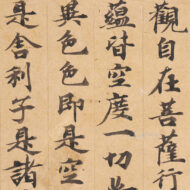 觀自在菩薩行
蘊皆空度一切
異色色即是空
是舍利子是諸